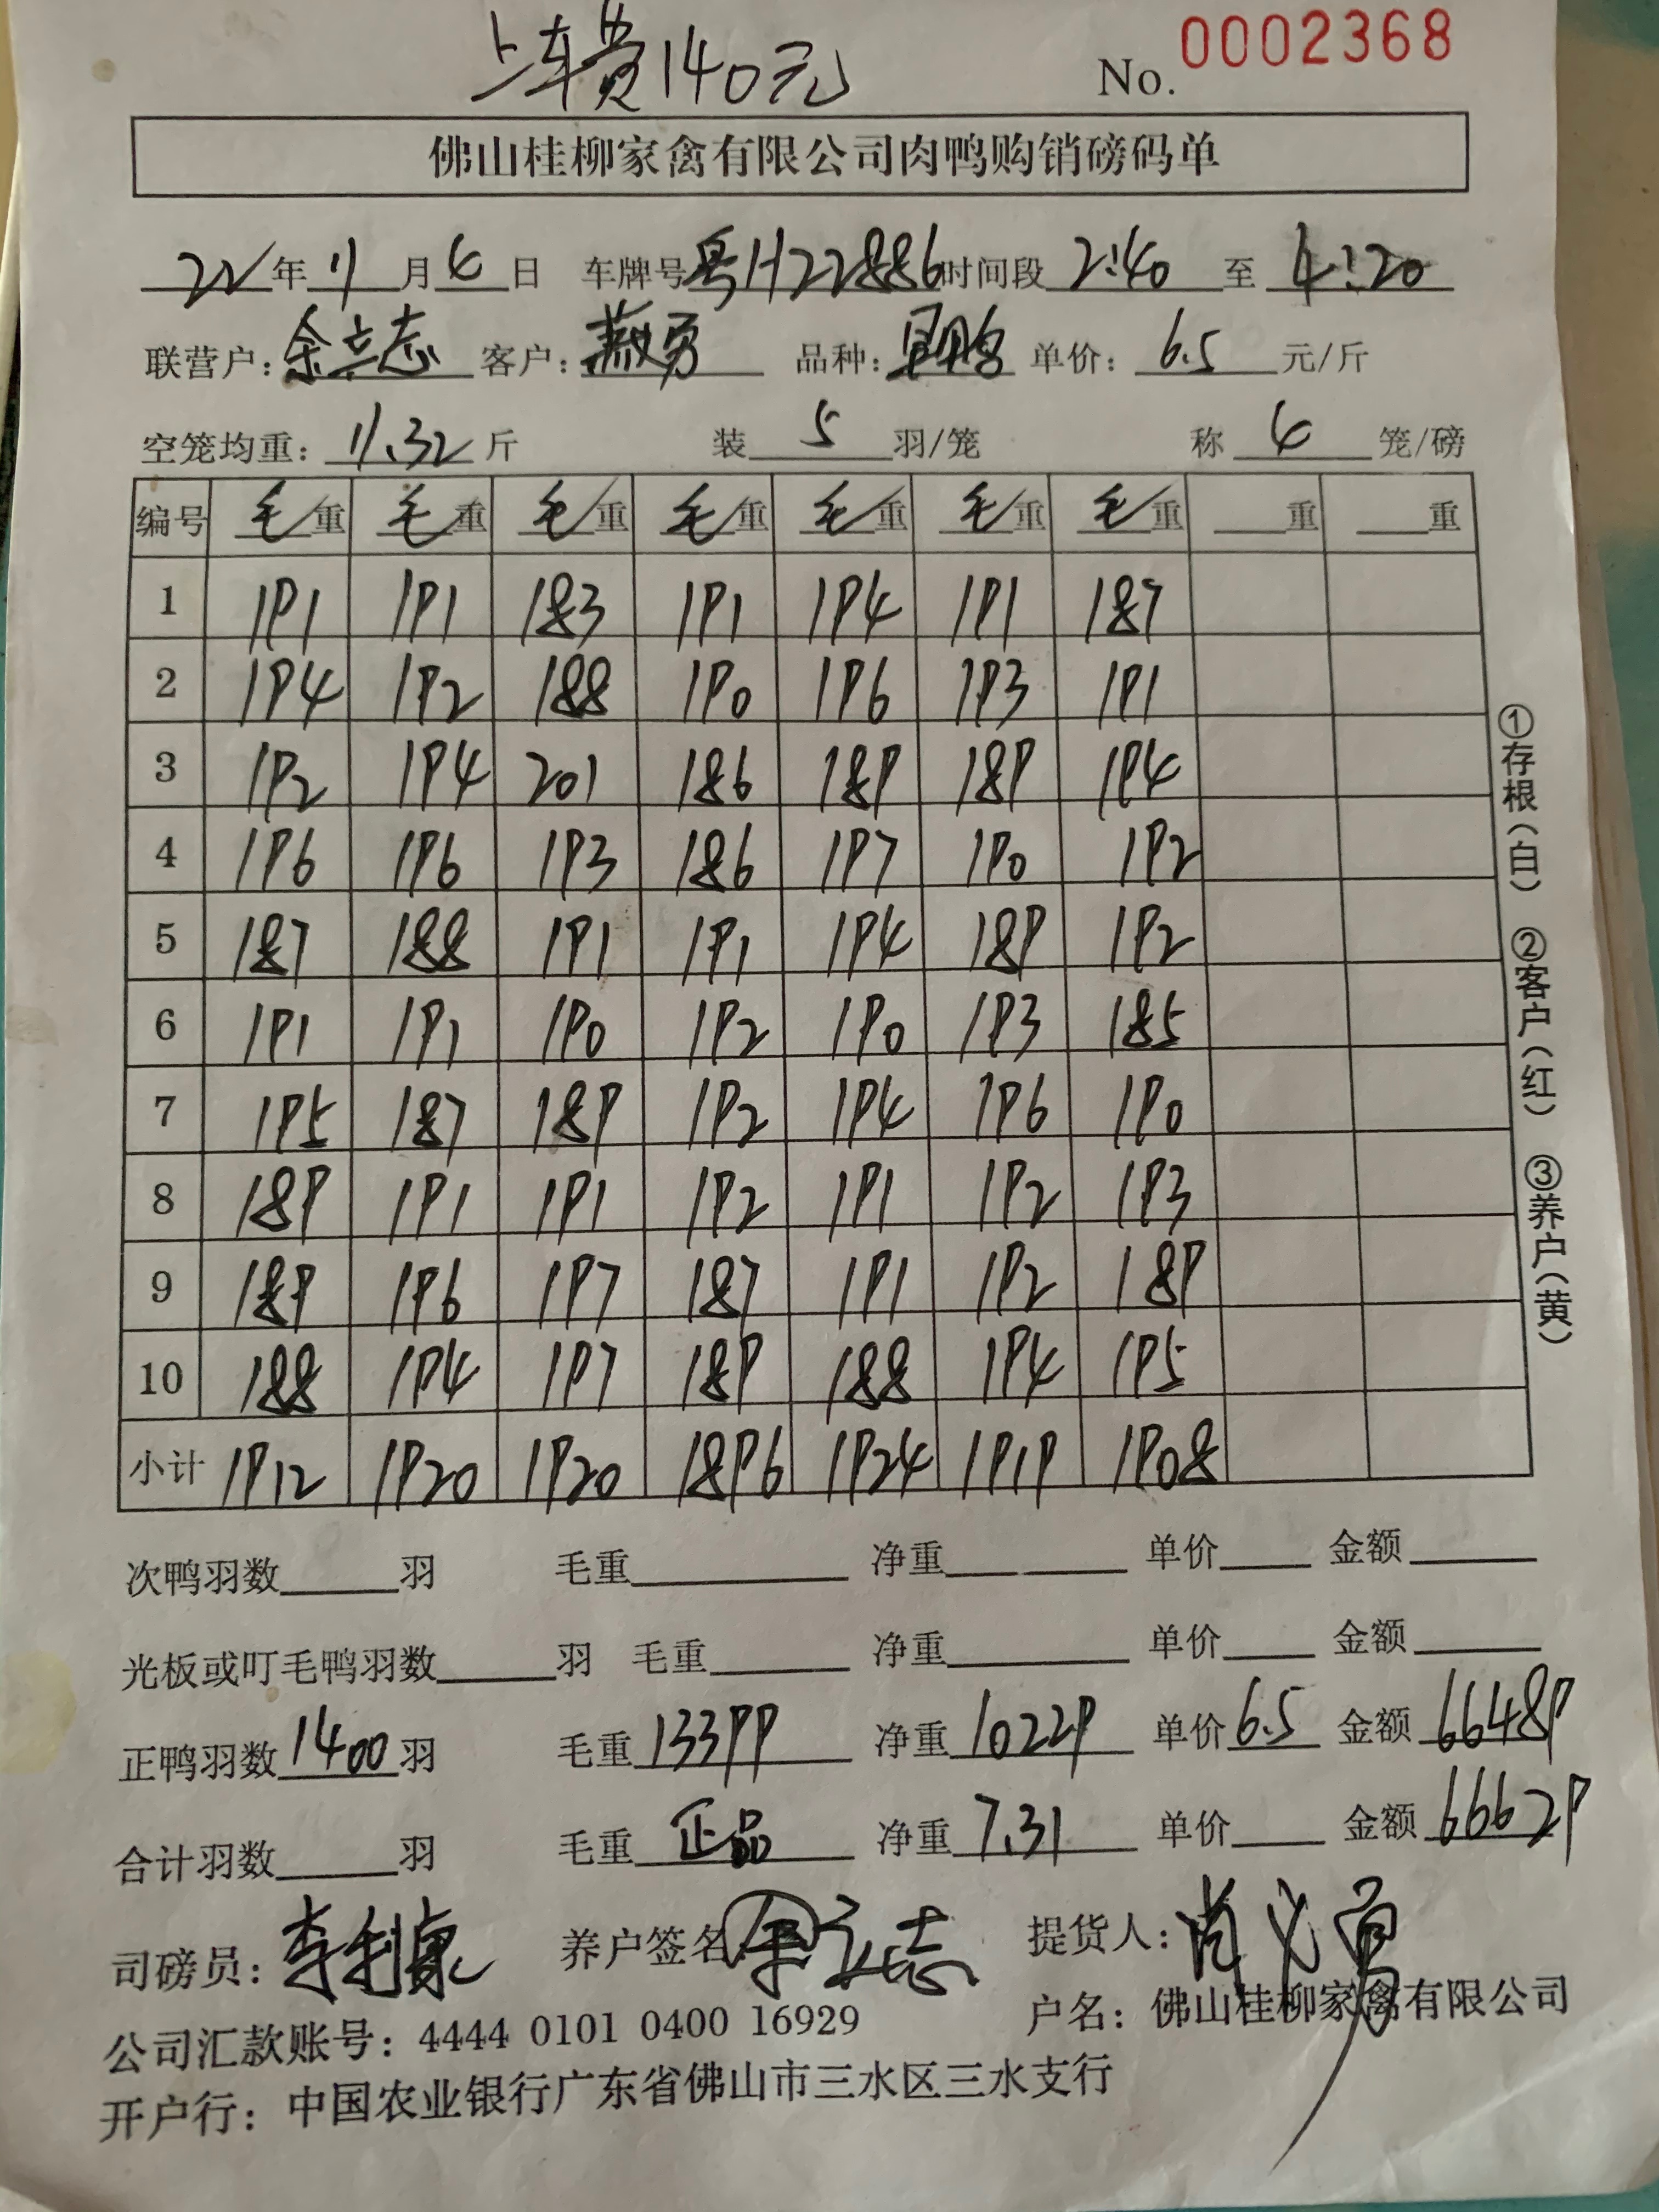 上车费140元
No. 0002368
佛山桂柳家禽有限公司肉鸭购销磅码单
22年11月4日 车牌号粤H22886时间段2:40至4:20
联营户:余立志 客户: 品种: 单价:6.5元/斤
空笼均重:11.32斤 装5羽/笼 称4笼/磅
编号 毛重 毛重 毛重 毛重 毛重 毛重 毛重 重 重
1 191 191 183 191 194 191 187
2 194 192 188 190 196 193 191
3 192 194 201 186 189 189 194
4 196 196 193 186 197 190 192
5 187 188 191 191 194 189 192
6 191 191 190 192 190 193 185
7 195 187 189 192 194 196 190
8 189 191 191 192 191 192 193
9 189 196 197 187 191 192 189
10 188 194 197 189 188 194 195
小计 1912 1920 1920 1896 1924 1919 1908
①存根(白) ②客户(红) ③养户(黄)
次鸭羽数 羽 毛重 净重 单价 金额
光板或叮毛鸭羽数 羽 毛重 净重 单价 金额
正鸭羽数1400羽 毛重13399 净重10229 单价6.5 金额66489
合计羽数 羽 毛重正品 净重7.31 单价 金额66629
司磅员: 养户签名余立志 提货人:
公司汇款账号:4444 0101 0400 16929 户名:佛山桂柳家禽有限公司
开户行:中国农业银行广东省佛山市三水区三水支行